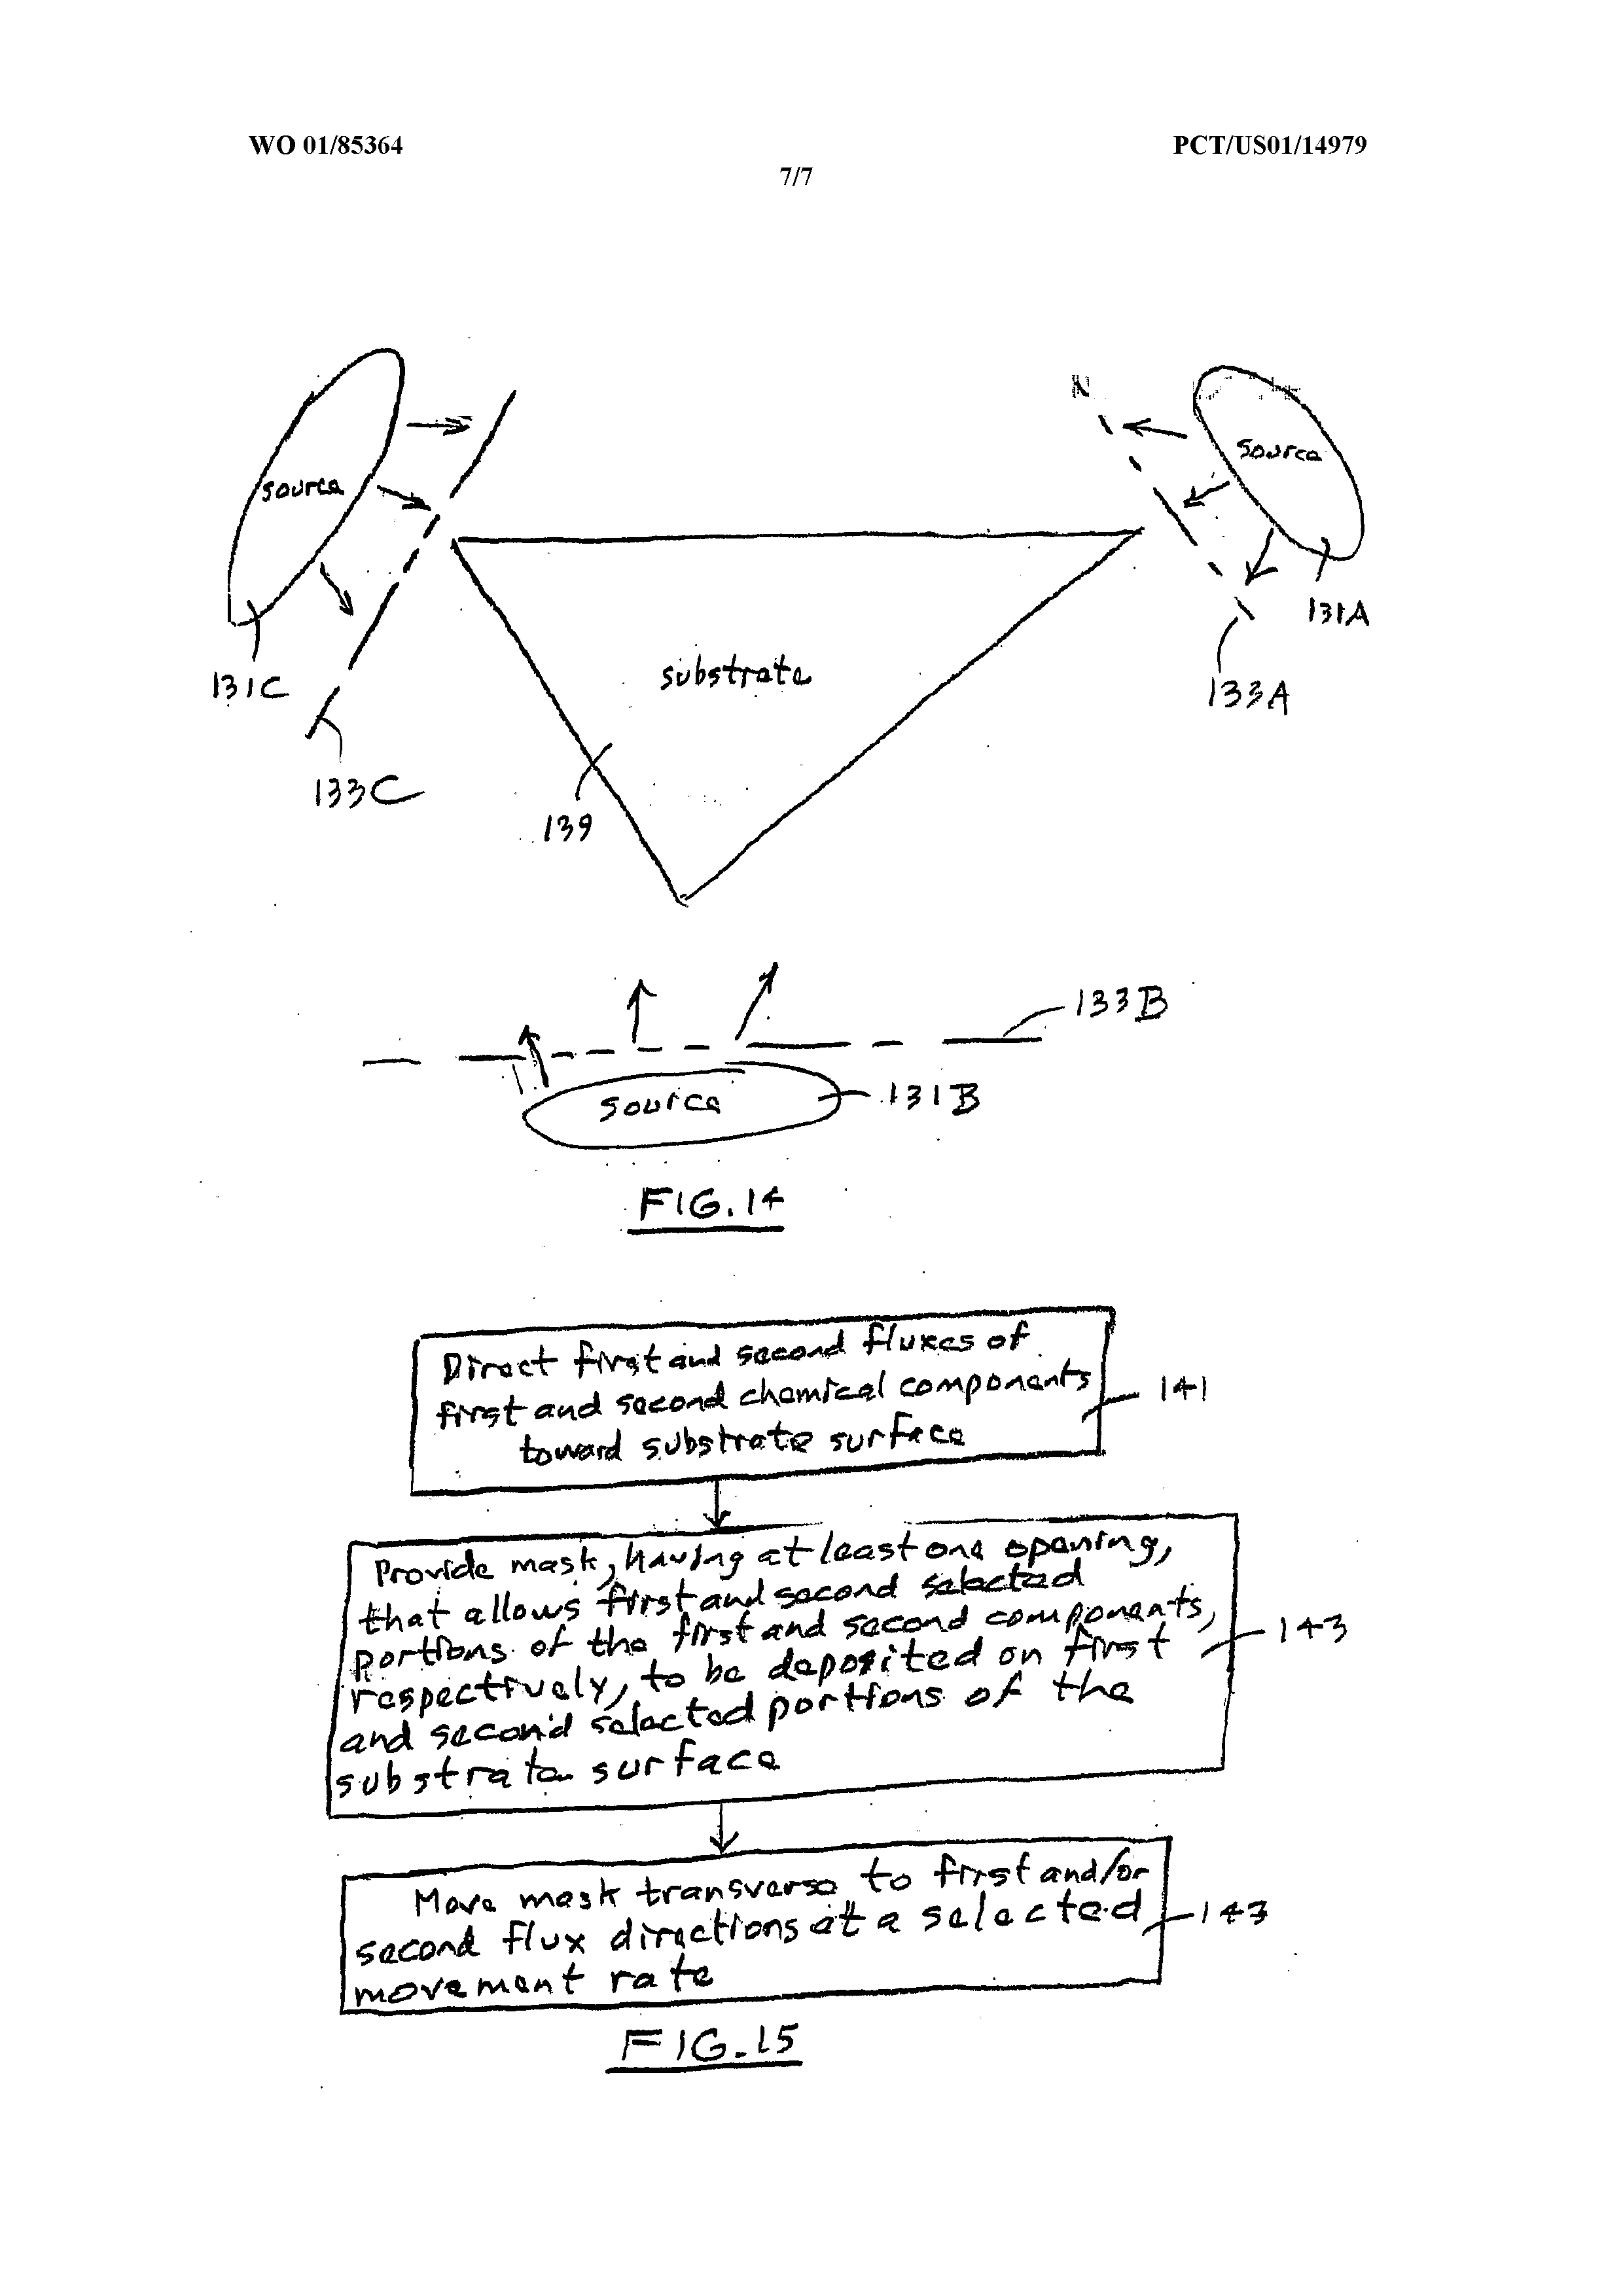 WO 01/85364
PCT/US01/14979
7/7
source
source
131A
131C
substrate
133A
133C
139
133B
131B
source
FIG. 14
Direct first and second fluxes of
first and second chemical components
toward substrate surface
141
Provide mask, having at least one opening,
that allows first and second selected
portions of the first and second components,
respectively, to be deposited on first
and second selected portions of the
substrate surface
143
Move mask transverse to first and/or
second flux directions at a selected
movement rate
143
FIG. 15